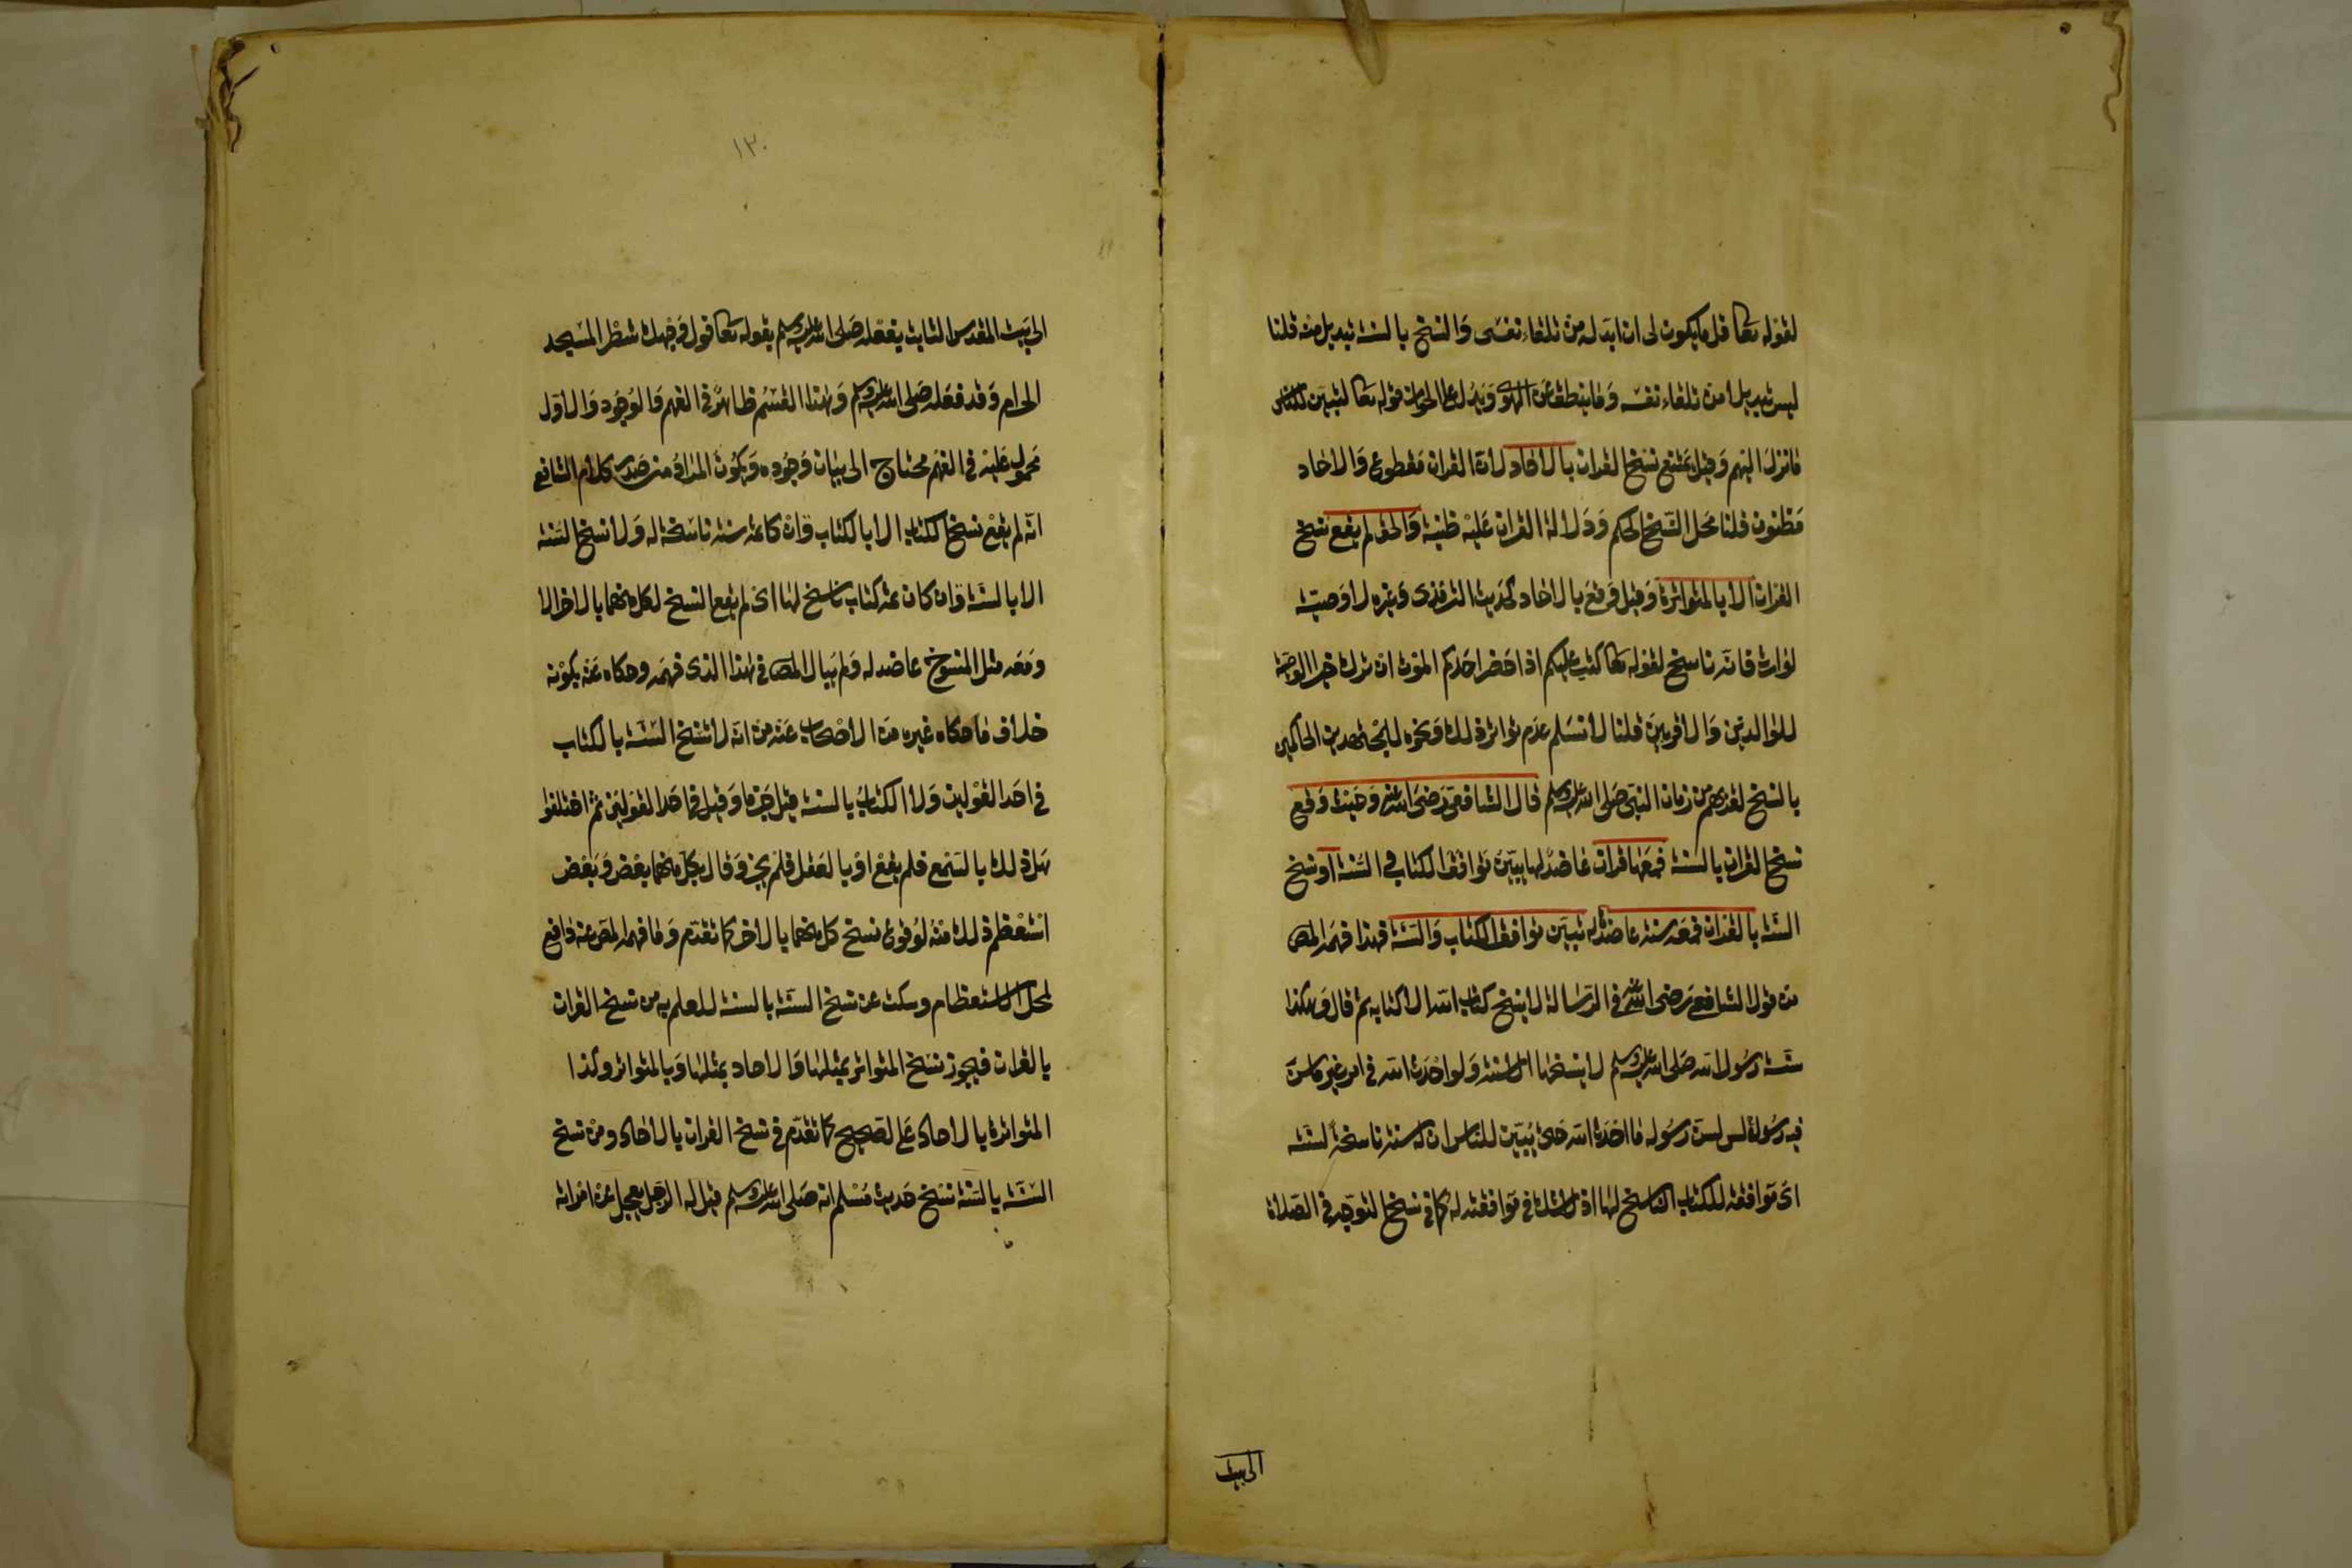 لقوله تعا قل ما يكون لى ان ابدله من تلقاء نفسى والنسخ بالسنة تبديل منه قلنا
ليس تبديلا من تلقاء نفسه وما ينطق عن الهوى ويدل على الجواز قوله تعا لتبين للناس
ما نزل اليهم وقيل يمتنع نسخ القران بالاحاد لان القران مقطوع والاحاد
مظنون قلنا محل النسخ الحكم ودلالة القران عليه ظنية والحق لم يقع نسخ
القران الا بالمتواترة وقيل وقع بالاحاد كحديث الترمذى وغيره لا وصية
لوارث فانه ناسخ لقوله تعا كتب عليكم اذا حضر احدكم الموت ان ترك خيرا الوصية
للوالدين والاقربين قلنا لا نسلم عدم تواتر ذلك ونحوه للمجتهدين الحاكمين
بالنسخ لقربهم من زمان النبى صلى الله عليه وسلم قال الشافعى رضى الله عنه وحيث وقع
نسخ القران بالسنة فمعها قران عاضد لها يبين توافق الكتاب والسنة او نسخ
السنة بالقران فمعه سنة عاضدة له تبين توافق الكتاب والسنة فهذا فهمه المص
من قول الشافعى رضى الله عنه فى الرسالة لا ينسخ كتاب الله الا كتابه ثم قال وهكذا
سنة رسول الله صلى الله عليه وسلم لا ينسخها الا سنة ولو احدث الله فى امر غير ما سن
فيه رسوله لسن رسوله ما احدث الله حتى يبين للناس ان له سنة ناسخة لسنته
اى موافقة للكتاب الناسخ لها اذ لا شك فى موافقته له كما فى نسخ التوجه فى الصلاة
الى بيت
١٣٠
الى بيت المقدس الثابت بفعله صلى الله عليه وسلم بقوله تعا فول وجهك شطر المسجد
الحرام وقد فعله صلى الله عليه وسلم وهذا القسم ظاهر فى الفهم والوجود والاول
محمول عليه فى الفهم محتاج الى بيان وجوده ويكون المراد من صدر كلام الشافعى
انه لم يقع نسخ الكتاب الا بالكتاب وان كا ثمه سنة ناسخة له ولا نسخ السنة
الا بالسنة وان كان ثمه كتاب ناسخ لها اى لم يقع النسخ لكل منهما بالاخر الا
ومعه مثل المنسوخ عاضد له ولم يبال المص فى هذا الذى فهمه وحكاه عنه بكونه
خلاف ما حكاه غيره من الاصحاب عنه من انه لا تنسخ السنة بالكتاب
فى احد القولين ولا الكتاب بالسنة قيل جزما وقيل فى احد القولين ثم اختلفوا
هل ذلك بالسمع فلم يقع او بالعقل فلم يجز وقال بكل منهما بعض وبعض
استعظم ذلك منه لوقوع نسخ كل منهما بالاخر كما تقدم وما فهمه المص عنه دافع
لمحل الاستعظام وسكت عن نسخ السنة بالسنة للعلم به من نسخ القران
بالقران فيجوز نسخ المتواتر بمثلها والاحاد بمثلها وبالمتواتر وكذا
المتواترة بالاحاد على الصحيح كما تقدم فى نسخ القران بالاحاد ومن نسخ
السنة بالسنة نسخ حديث مسلم انه صلى الله عليه وسلم قيل له الرجل يعجل عن امراته